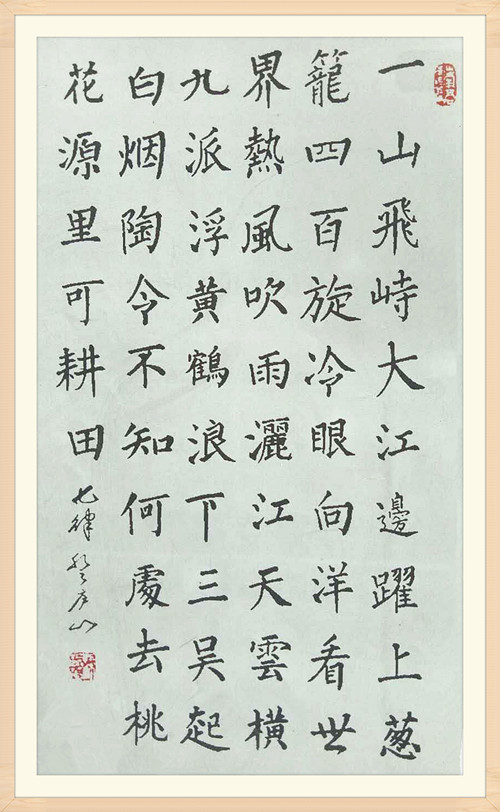 一山飛峙大江邊躍上葱
籠四百旋冷眼向洋看世
界熱風吹雨灑江天雲橫
九派浮黄鶴浪下三吴起
白烟陶令不知何處去桃
花源里可耕田
七律登庐山